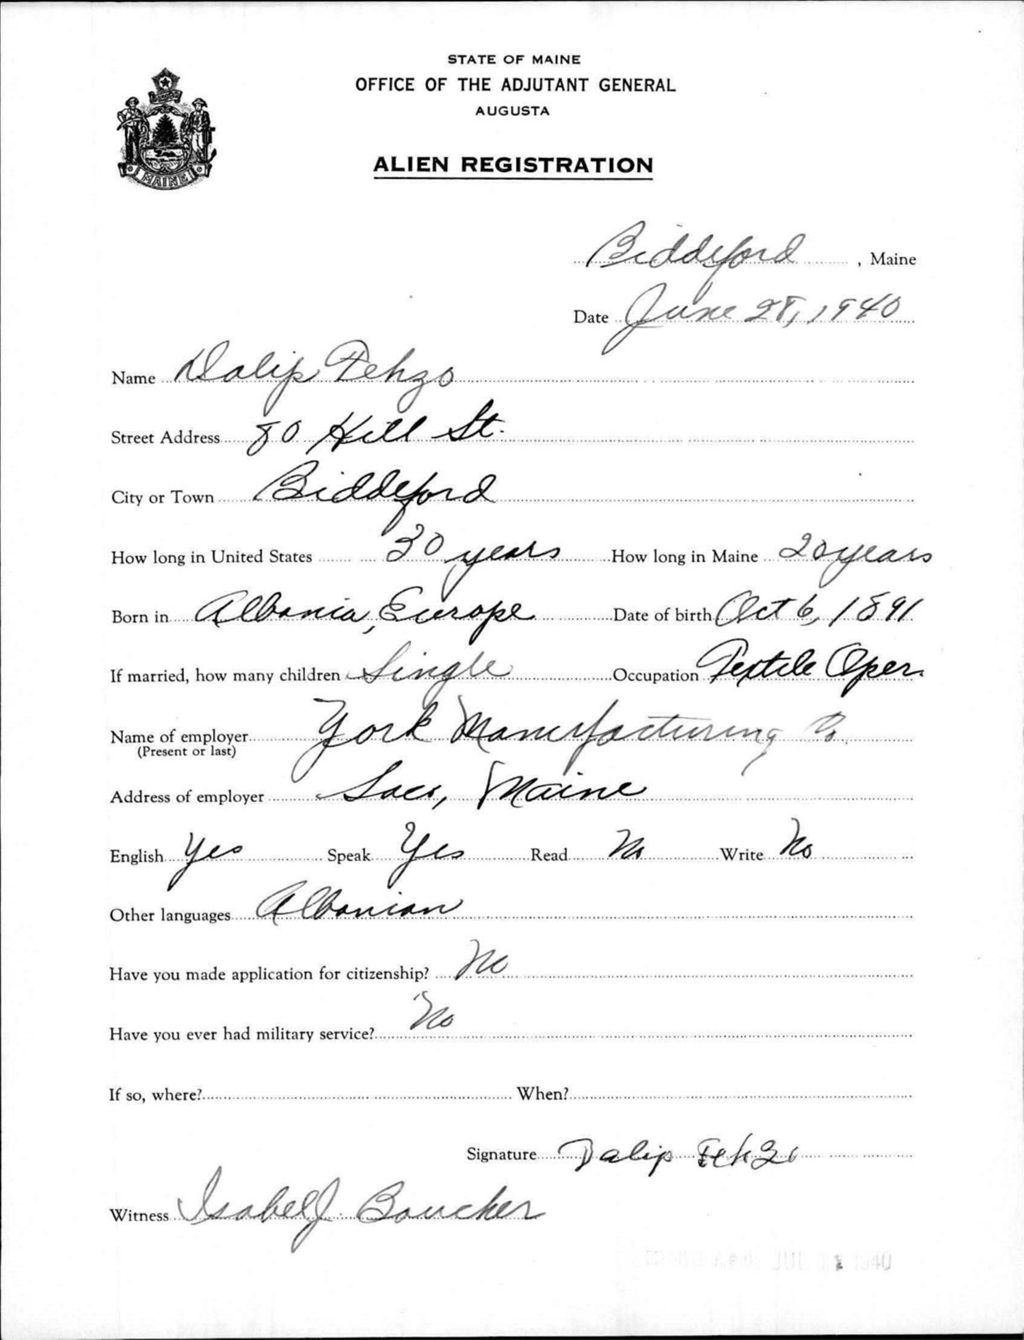 STATE OF MAINE
OFFICE OF THE ADJUTANT GENERAL
AUGUSTA
ALIEN REGISTRATION
MAINE
Biddeford, Maine
Date June 28, 1940
Name Dalip Fehzo
Street Address 80 Hill St.
City or Town Biddeford
How long in United States 30 years How long in Maine 20 years
Born in Albania, Europe Date of birth Oct 6, 1891
If married, how many children Single Occupation Textile Oper.
Name of employer York Manufacturing Co.
(Present or last)
Address of employer Saco, Maine
English Yes Speak Yes Read No Write No
Other languages Albanian
Have you made application for citizenship? No
Have you ever had military service? No
If so, where? When?
Signature Dalip Fehzo
Witness Isabel J. Boucher